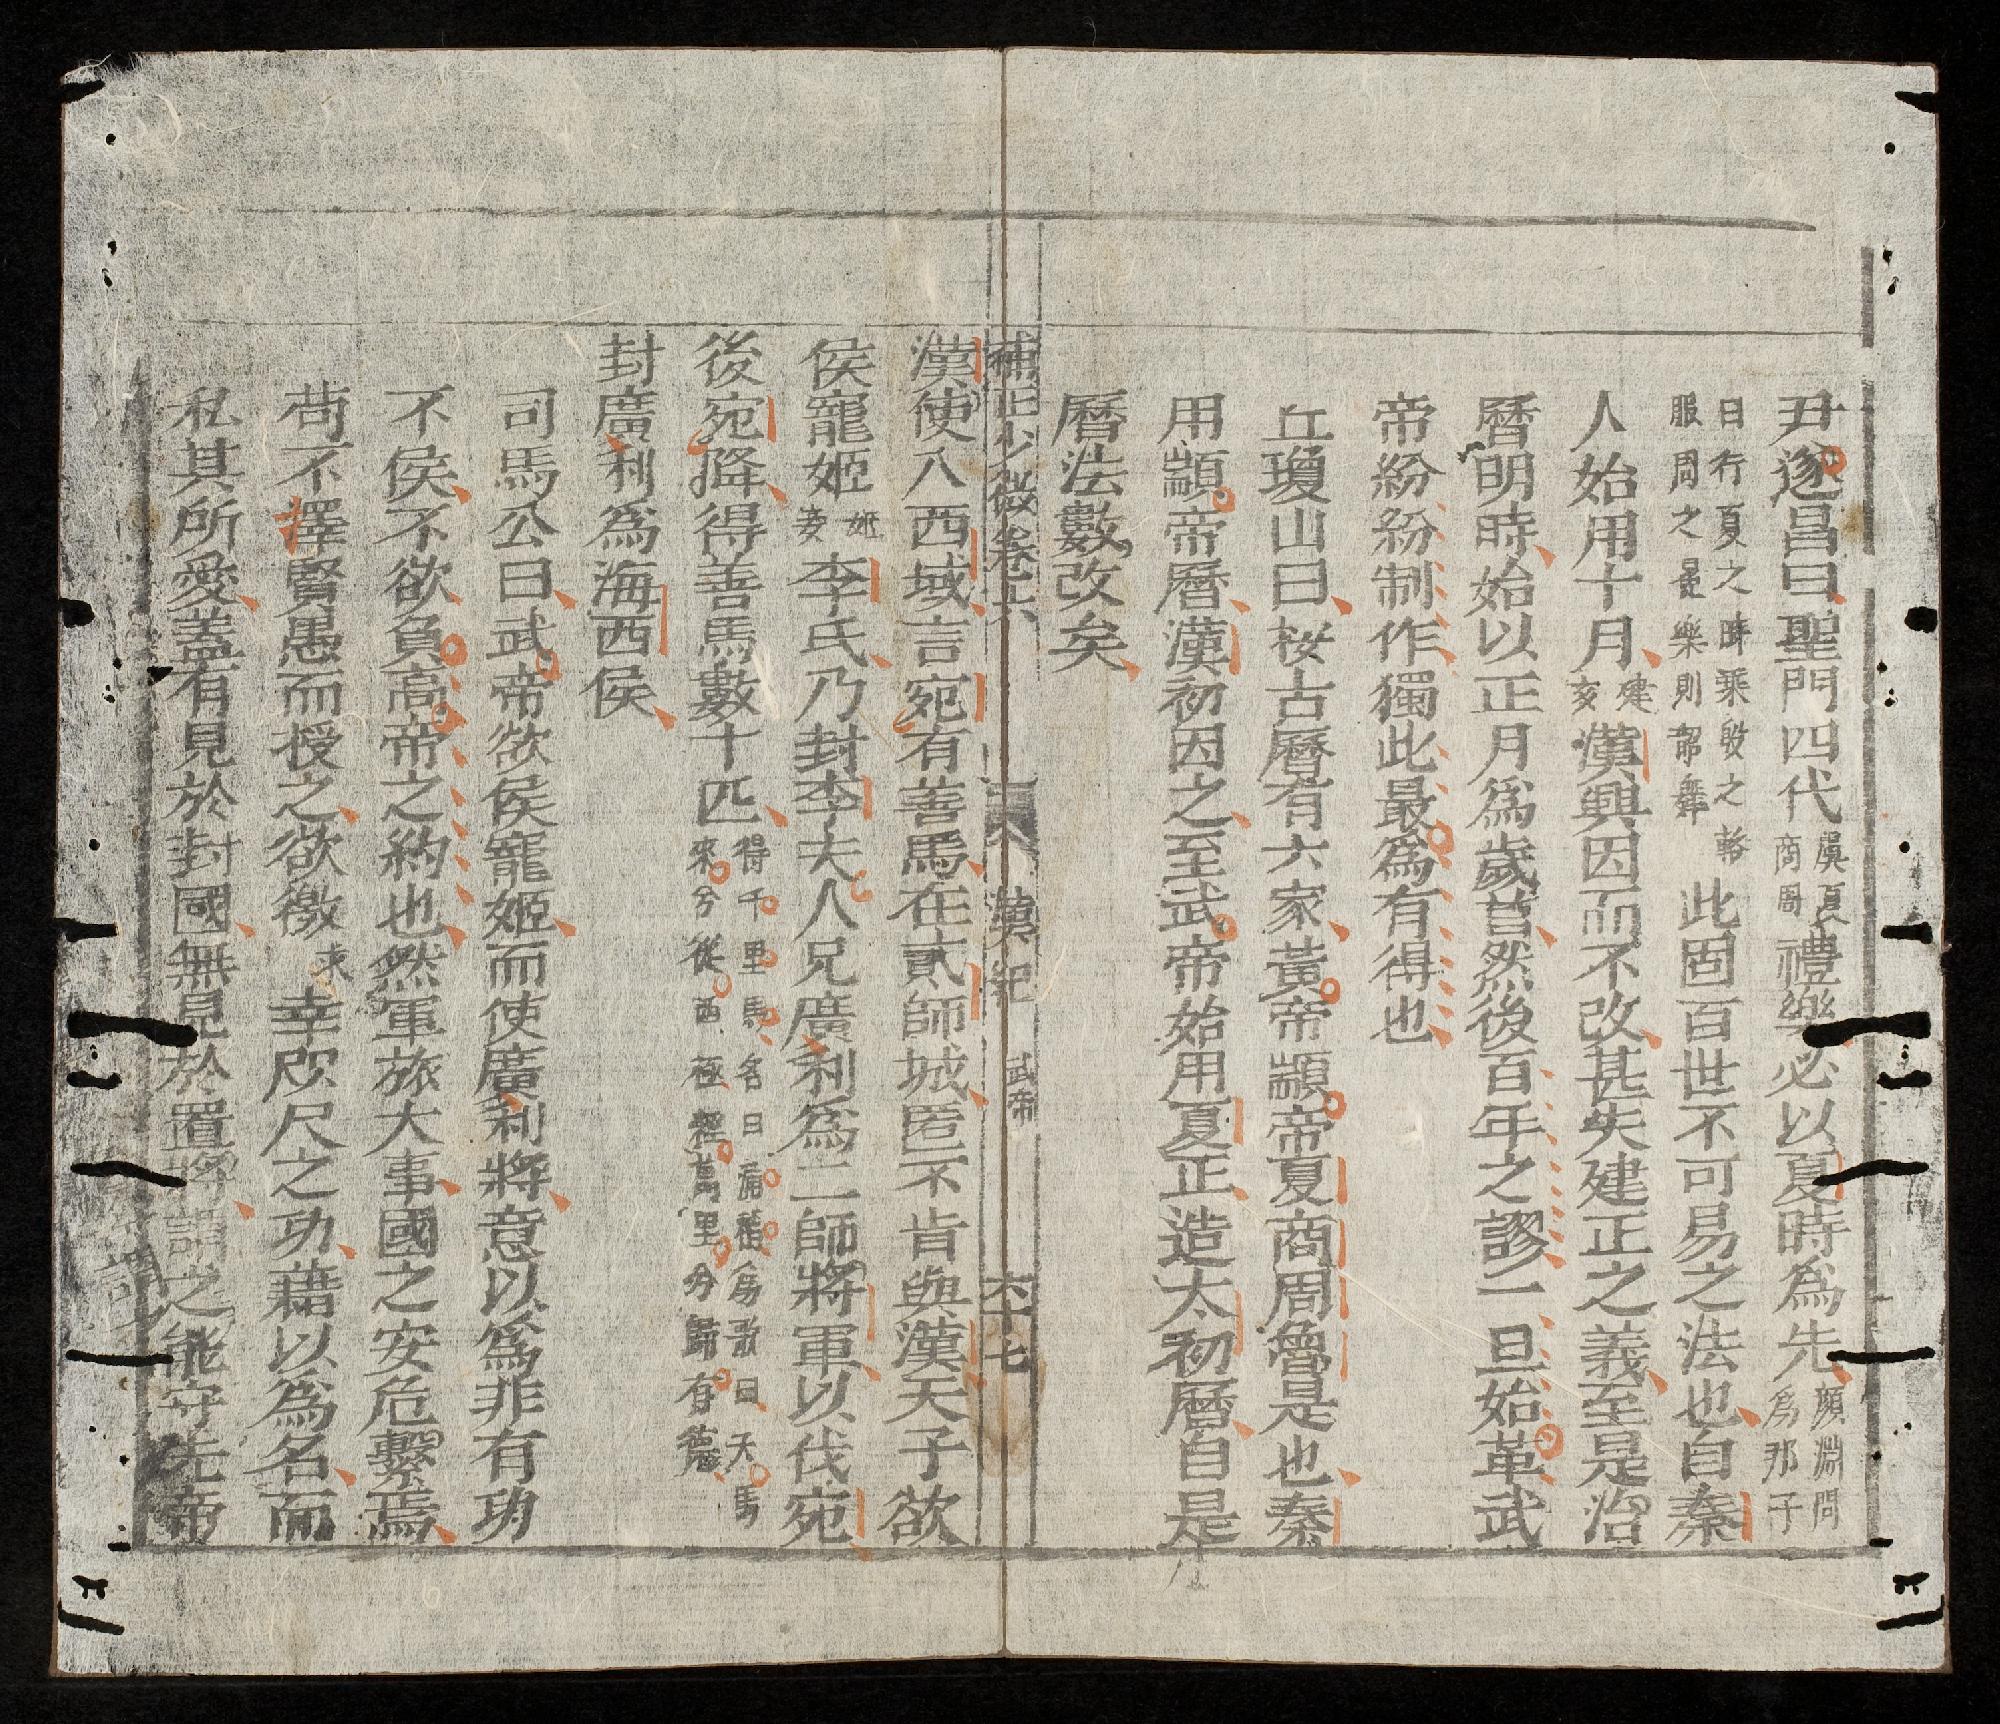 尹遂昌曰聖門四代虞夏商周禮樂必以夏時爲先顔淵問爲邦子
曰行夏之時乘殷之輅服周之冕樂則韶舞此固百世不可易之法也自秦
人始用十月建亥漢興因而不改甚失建正之義至是治
曆明時始以正月爲歲首然後百年之謬一旦始革武
帝紛紛制作獨此最爲有得也
丘瓊山曰桉古曆有六家黃帝顓帝夏商周魯是也秦
用顓帝曆漢初因之至武帝始用夏正造太初曆自是
曆法數改矣
補正少微卷六 漢紀 武帝 六十七
漢使八西域言宛有善馬在貳師城匿不肯與漢天子欲
侯寵姬姬妾李氏乃封李夫人兄廣利爲二師將軍以伐宛
後宛降得善馬數十匹得千里馬名曰蒲稍爲歌曰天馬來兮從西極經萬里兮歸有德
封廣利爲海西侯
司馬公曰武帝欲侯寵姬而使廣利將意以爲非有功
不侯不欲負高帝之約也然軍旅大事國之安危繫焉
苟不擇賢愚而授之欲徼求幸咫尺之功藉以爲名而
私其所愛蓋有見於封國無見於置將謂之能守先帝